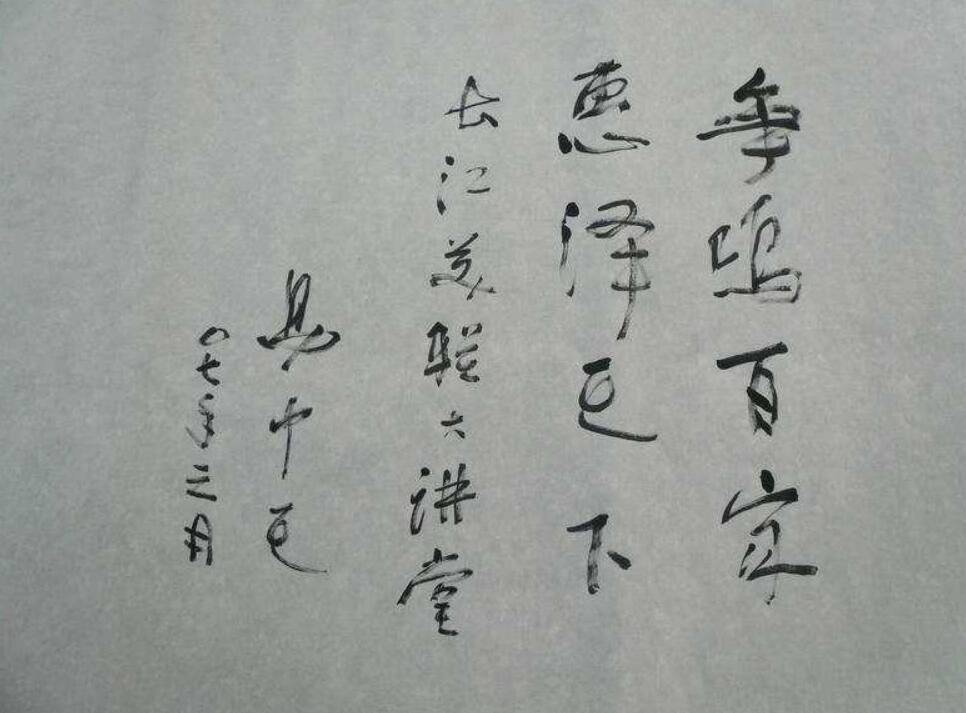 争鸣百家
惠泽天下
长江美联大讲堂
易中天
〇七年三月